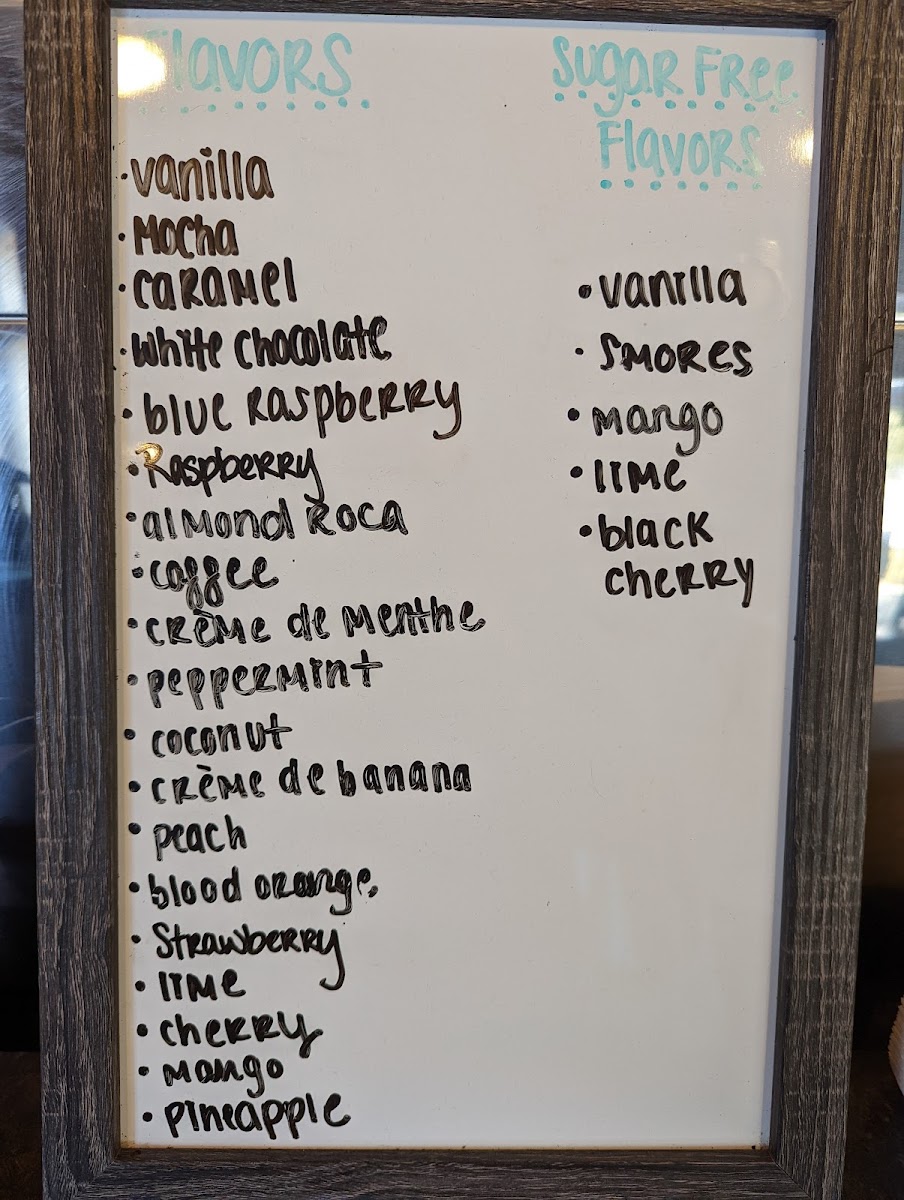 Flavors
• vanilla
• Mocha
• caramel
• White chocolate
• blue Raspberry
• Raspberry
• almond Roca
• coffee
• crème de menthe
• peppermint
• coconut
• crème de banana
• peach
• blood orange
• Strawberry
• lime
• cherry
• mango
• pineapple
Sugar Free
Flavors
• vanilla
• Smores
• mango
• lime
• black
cherry